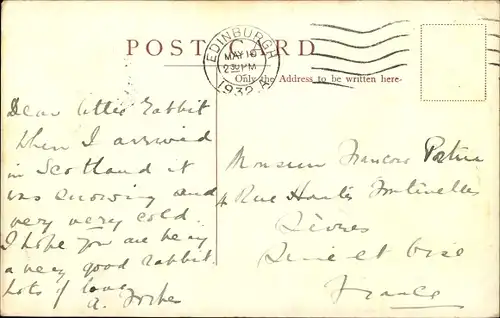 POST CARD
EDINBURGH
MAY 10
2 30 PM
1932
Only the Address to be written here.
Dear little Rabbit
When I arrived
in Scotland it
was snowing and
very very cold.
I hope you are being
a very good rabbit.
Lots of love
A.
Monsieur François
4 Rue Hautes Fontinelles
Sèvres
Seine et Oise
France